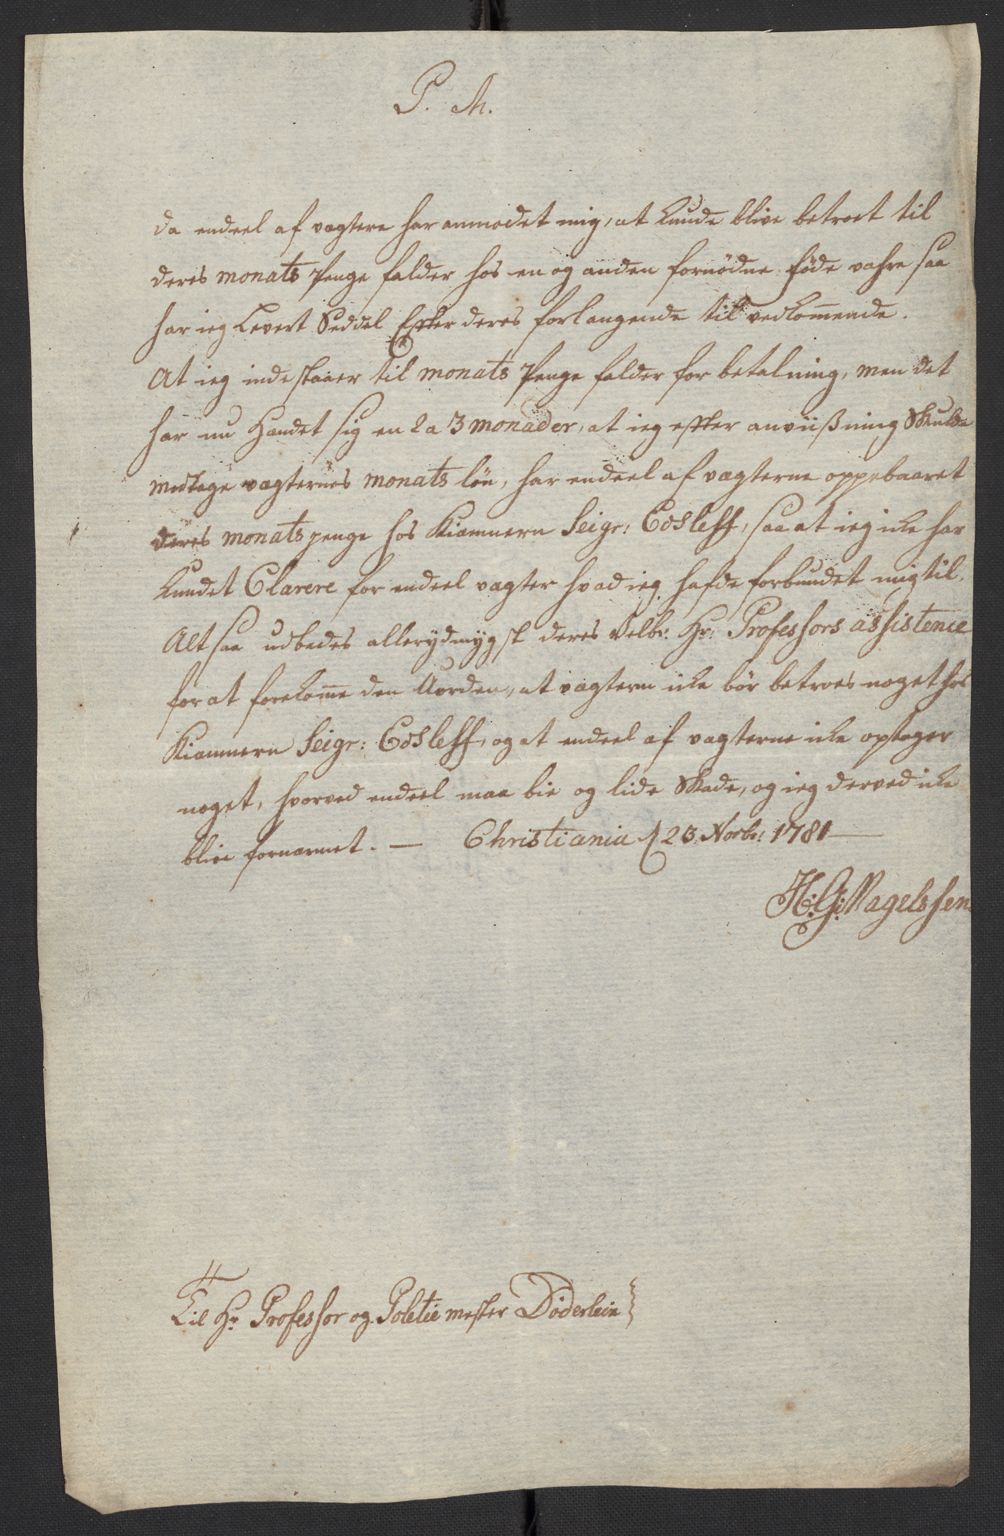 P. M.
da endeel af vagtere har anmodet mig, at kunde blive betroet til
deres monats Penge falder hos en og anden fornødne føde vahre saa
har ieg Levert Seddel Efter deres forlangende til vedkom̅ende.
At ieg indestaaer til monats Penge falder for betalning, men det
har nu Hændet sig en 2 a 3 monader, at ieg efter anviisning Skulde
modtage vagternes monats løn, har endeel af vagterne oppebaaret
deres monats penge hos Kiæmnern Seigr: Cosleff, saa at ieg icke har
kundet Clarere for endeel vagter hvad ieg hafde forbundet mig til.
Alt saa udbedes allerydmygst deres Velbr: Hr: Professors assistence
for at forekom̅e den Uorden, at vagtern icke bør betroes noget hos
Kiæmnern Seigr: Cosleff, og at endeel af vagterne icke optager
noget, hvorved endeel maa bie og lide Skade, og ieg derved icke
blive fornærmet. — Christiania d 23 Novbr: 1781
H: G: Nagelssen
Til Hr Professor og Poletie mester Døderlein